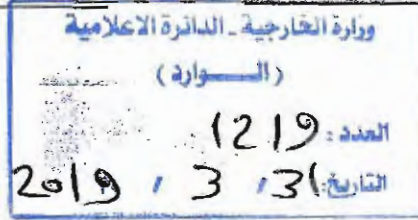 وزارة الخارجية - الدائرة الاعلامية
( الـــوارد )
العدد : 1219
التاريخ: 31 / 3 / 2019